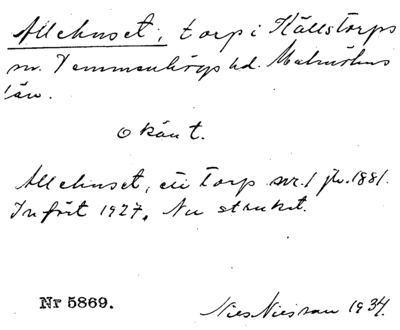 Allehuset, torp i Hällstorps
sn. Vemmenhögs hd. Malmöhus
län.
okänt.
Allehuset, ett torp nr. 1 jb. 1881.
Infört 1927. Nu struket.
Nr 5869.
Nils 1934.